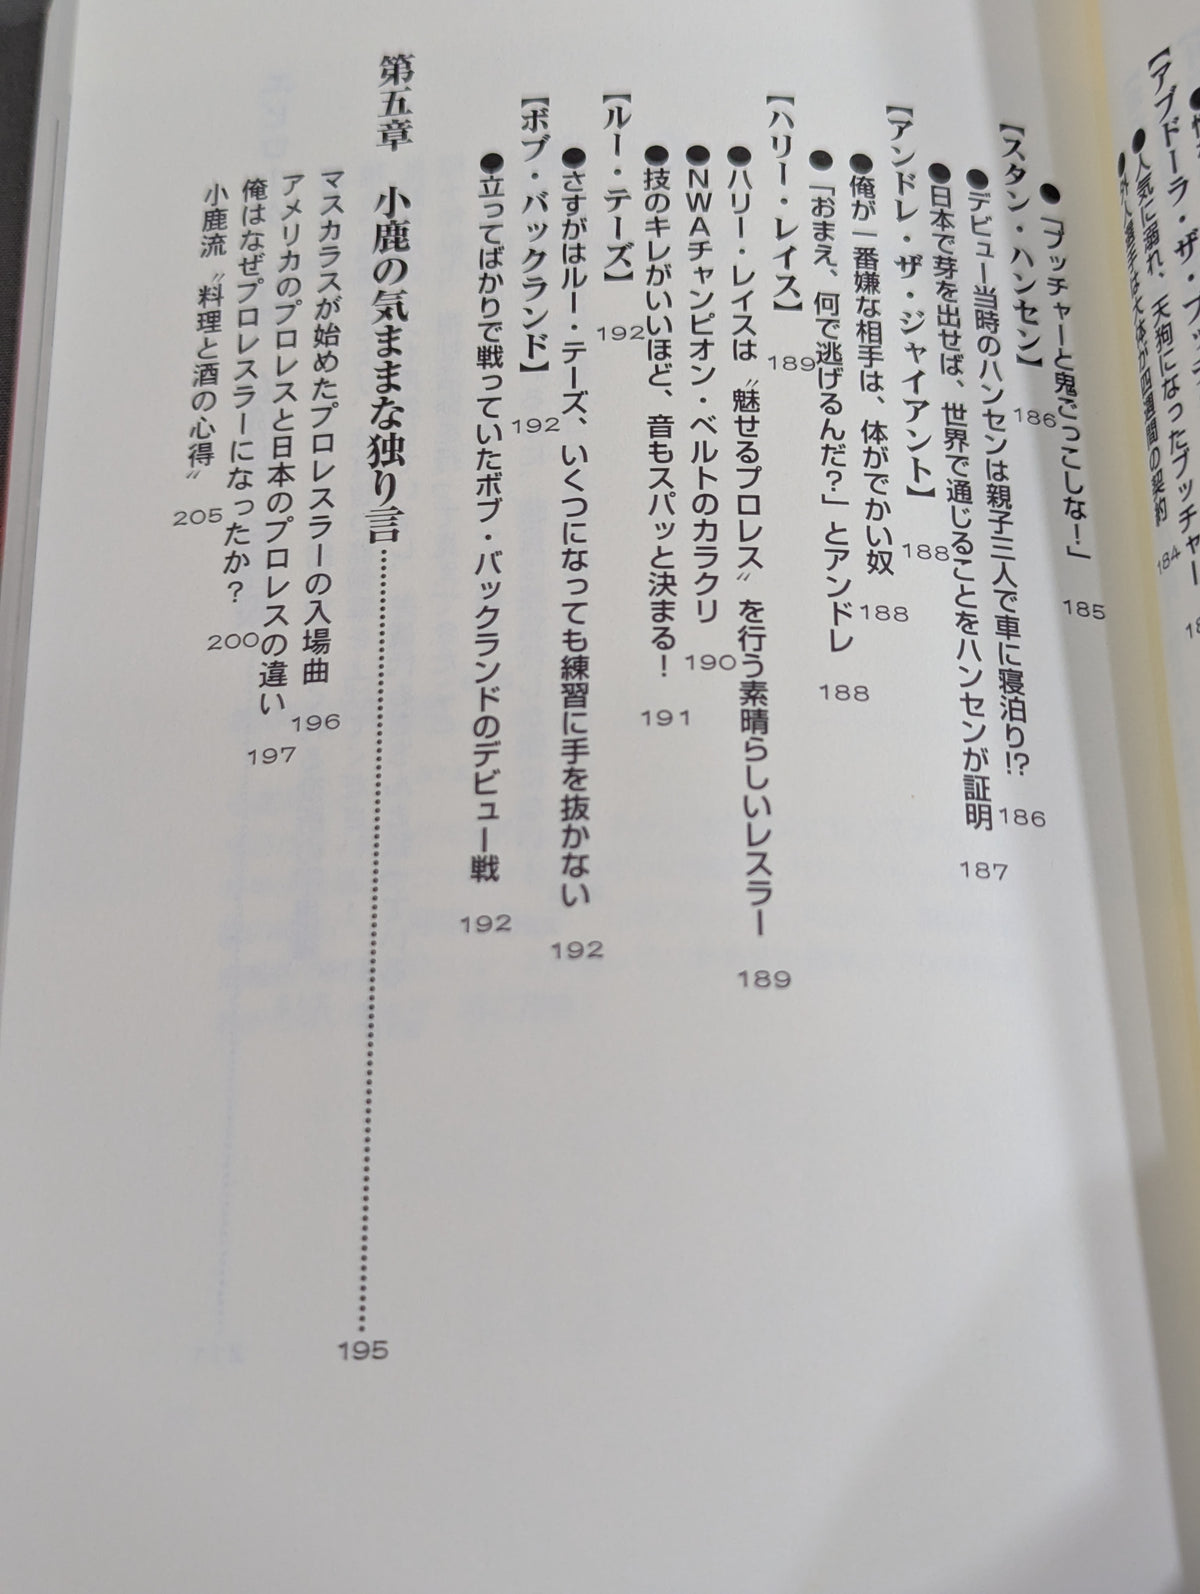 【アブドーラ・ザ・ブッチャー
●人気に溺れ、天狗になったブッチャー
184
●外人選手は大体が四週間の契約
●「ブッチャーと鬼ごっこしな！」 185
【スタン・ハンセン】 186
●デビュー当時のハンセンは親子三人で車に寝泊り!? 186
●日本で芽を出せば、世界で通じることをハンセンが証明 187
【アンドレ・ザ・ジャイアント】 188
●俺が一番嫌な相手は、体がでかい奴 188
●「おまえ、何で逃げるんだ？」とアンドレ 188
【ハリー・レイス】 189
●ハリー・レイスは〝魅せるプロレス〟を行う素晴らしいレスラー 189
●NWAチャンピオン・ベルトのカラクリ 190
●技のキレがいいほど、音もスパッと決まる！ 191
【ルー・テーズ】 192
●さすがはルー・テーズ、いくつになっても練習に手を抜かない 192
【ボブ・バックランド】 192
●立ってばかりで戦っていたボブ・バックランドのデビュー戦 192
第五章 小鹿の気ままな独り言……………………………… 195
マスカラスが始めたプロレスラーの入場曲 196
アメリカのプロレスと日本のプロレスの違い 197
俺はなぜプロレスラーになったか？ 200
小鹿流〝料理と酒の心得〟 205